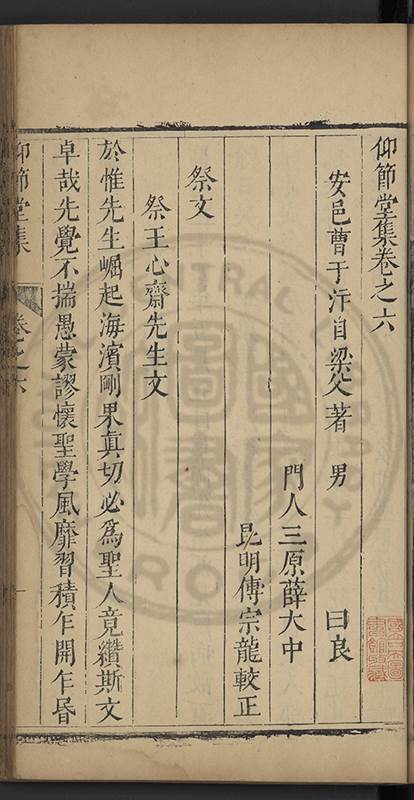 仰節堂集卷之六
安邑曹于汴自梁父著 男 曰良
門人三原薛大中
昆明傅宗龍較正
祭文
祭王心齋先生文
於惟先生崛起海濱剛果真切必為聖人竟纘斯文
卓哉先覺不揣愚蒙謬懷聖學風靡習積乍開乍昏
仰節堂集 卷之六 一